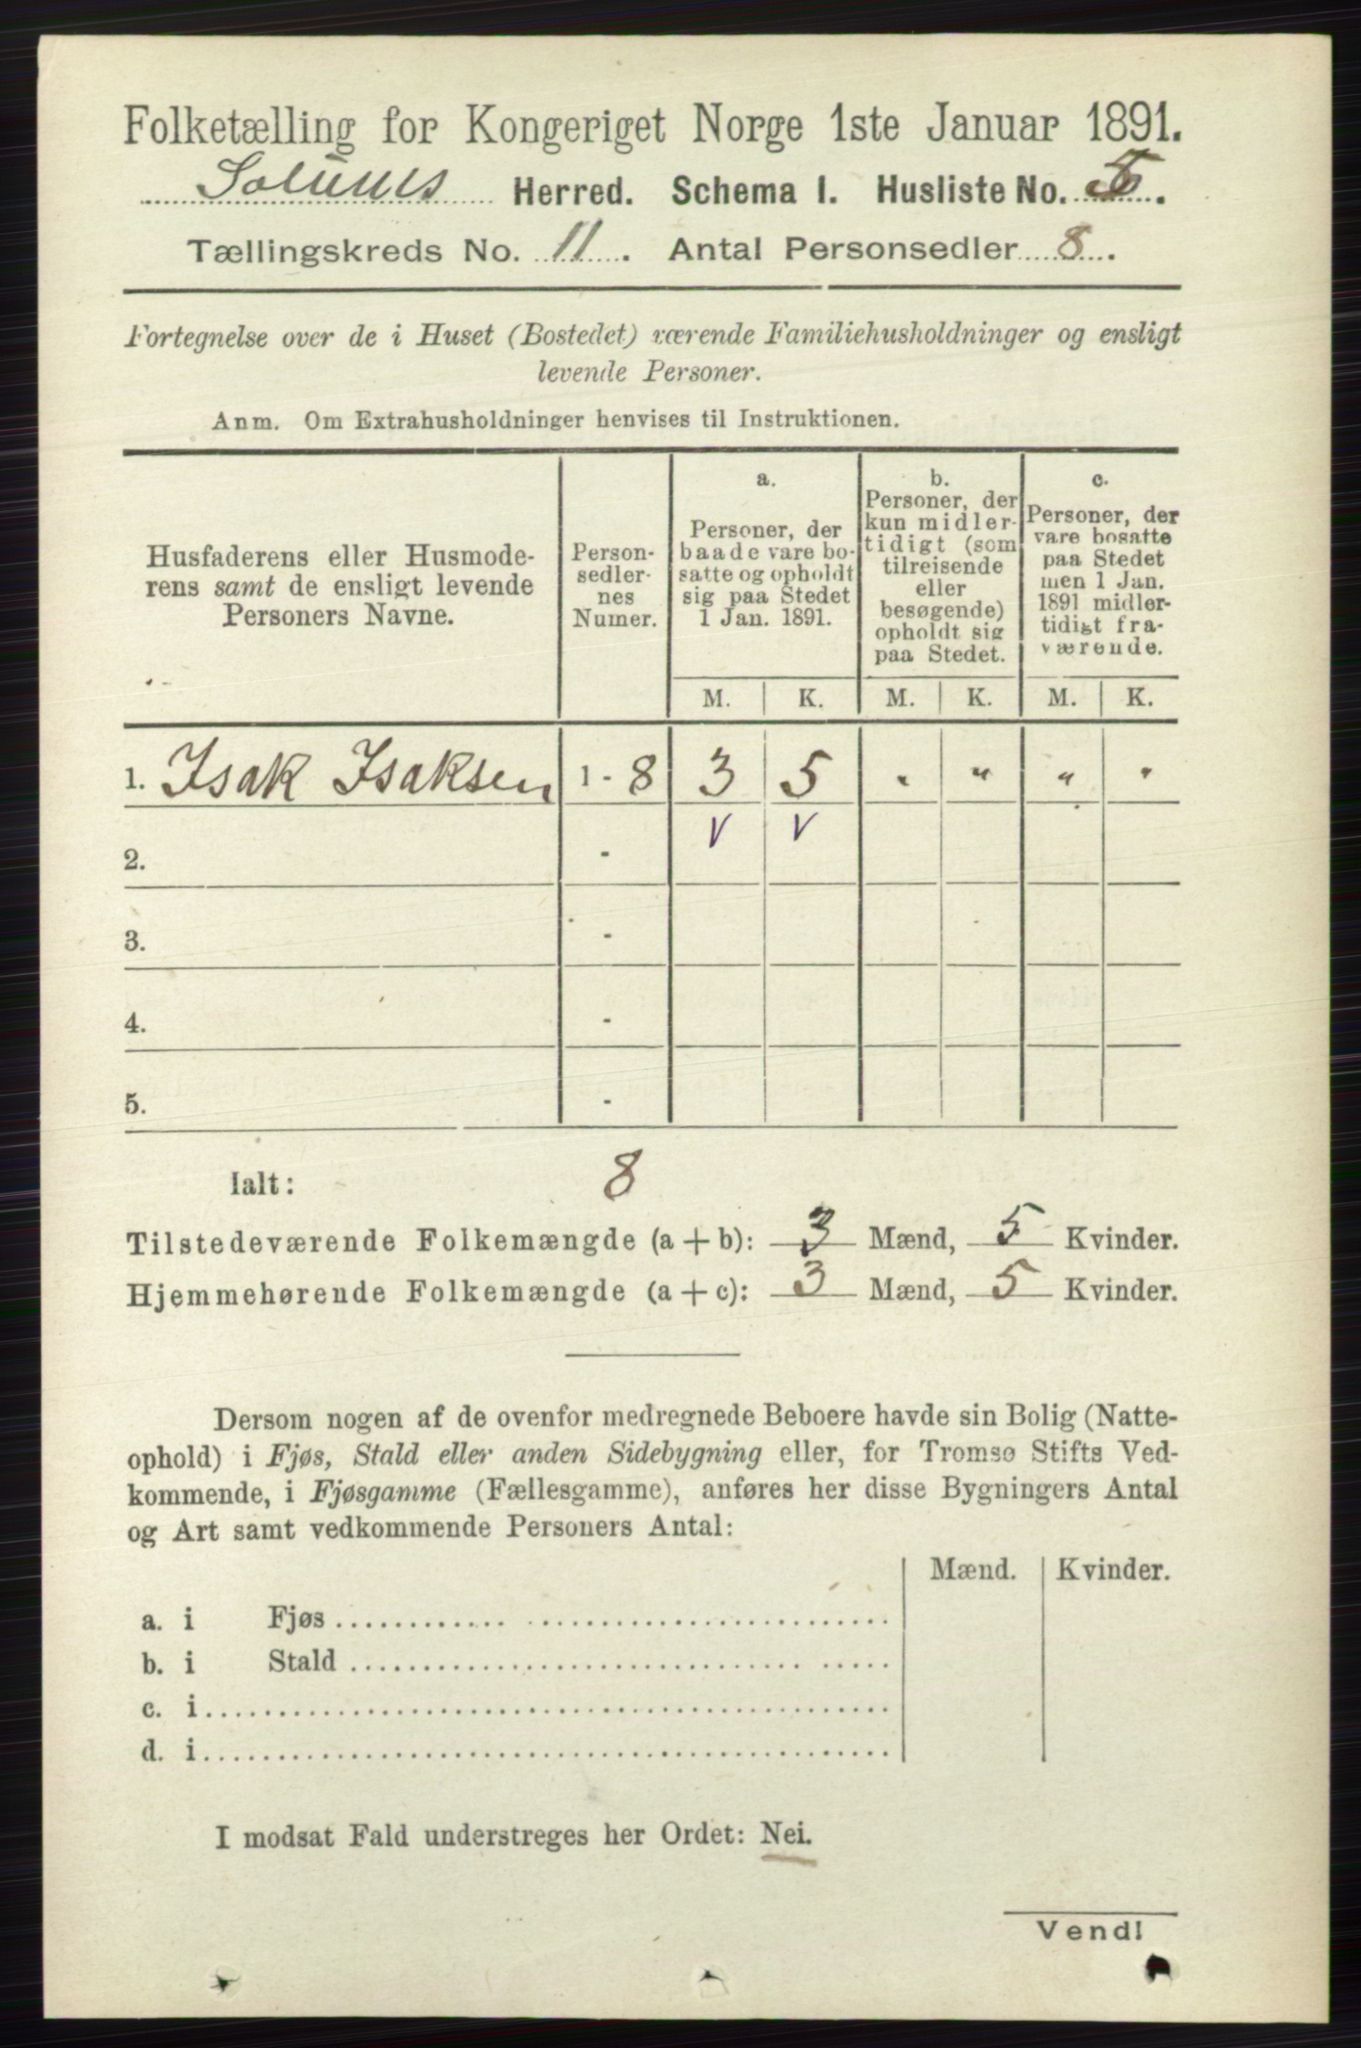 Folketælling for Kongeriget Norge 1ste Januar 1891.
Solums Herred. Schema I. Husliste No. 5.
Tællingskreds No. 11. Antal Personsedler 8.
Fortegnelse over de i Huset (Bostedet) værende Familiehusholdninger og ensligt
levende Personer.
Anm. Om Extrahusholdninger henvises til Instruktionen.
Husfaderens eller Husmode-
rens samt de ensligt levende
Personers Navne.
Person-
sedler-
nes
Numer.
a.
Personer, der
baade vare bo-
satte og opholdt
sig paa Stedet
1 Jan. 1891.
b.
Personer, der
kun midler-
tidigt (som
tilreisende
eller
besøgende)
opholdt sig
paa Stedet.
c.
Personer, der
vare bosatte
paa Stedet
men 1 Jan.
1891 midler-
tidigt fra-
værende.
M. K. M. K. M. K.
1. Isak Isaksen 1 - 8 3 5 " " " "
2. - V V
3. -
4. -
5. -
Ialt: 8
Tilstedeværende Folkemængde (a + b): 3 Mænd, 5 Kvinder.
Hjemmehørende Folkemængde (a + c): 3 Mænd, 5 Kvinder.
Dersom nogen af de ovenfor medregnede Beboere havde sin Bolig (Natte-
ophold) i Fjøs, Stald eller anden Sidebygning eller, for Tromsø Stifts Ved-
kommende, i Fjøsgamme (Fællesgamme), anføres her disse Bygningers Antal
og Art samt vedkommende Personers Antal:
Mænd. Kvinder.
a. i Fjøs
b. i Stald
c. i
d. i
I modsat Fald understreges her Ordet: Nei.
Vend!